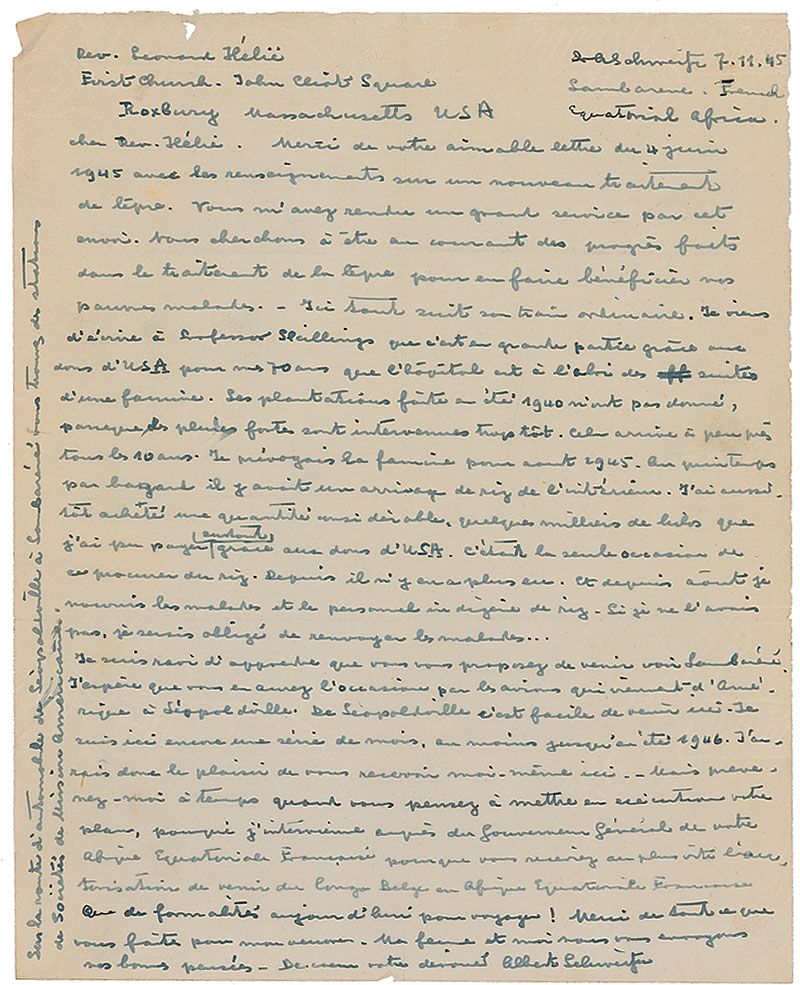 Rev. Leonard Hélié
Dr A Schweitz 7.11.45
First Church. John Eliot Square
Lambarene. French
Roxbury Massachusetts USA
Equatorial Africa.
cher Rev. Hélié. Merci de votre aimable lettre du 4 juin
1945 avec les renseignements sur un nouveau traitement
de lèpre. Vous m'avez rendu un grand service par cet
envoi. Nous cherchons à être au courant des progrès faits
dans le traitement de la lèpre pour en faire bénéficier nos
pauvres malades. – Ici tout suit son train ordinaire. Je viens
d'écrire à Professor Skillings que c'est en grande partie grâce aux
dons d'USA pour mes 70 ans que l'hôpital est à l'abri des suites
d'une famine. Les plantations faites en été 1940 n'ont pas donné,
parceque des pluies fortes sont intervenues trop tôt. Cela arrive à peu près
tous les 10 ans. Je prévoyais la famine pour aout 1945. Au printemps
par hazard il y avait un arrivage de riz de l'intérieur. J'ai aussi-
tôt acheté une quantité considérable, quelques milliers de kilos que
j'ai pu payer surtout grâce aux dons d'USA. C'était la seule occasion de
se procurer du riz. Depuis il n'y en a plus eu. Et depuis aôut je
nourris les malades et le personnel indigène de riz. Si je ne l'avais
pas, je serais obligé de renvoyer les malades...
Je suis ravi d'apprendre que vous vous proposez de venir voir Lambaréné.
J'espère que vous en aurez l'occasion par les avions qui viennent d'Amé-
rique à Léopoldville. De Léopoldville c'est facile de venir ici. Je
suis ici encore une série de mois, au moins jusqu'en été 1946. J'au-
rais donc le plaisir de vous recevoir moi-même ici. – Mais preve-
nez-moi à temps quand vous pensez à mettre en exécution votre
plan, pourque j'intervienne auprès du Gouverneur Général de votre
Afrique Equatoriale Française pourque vous receviez au plus vite l'au-
torisation de venir du Congo Belge en Afrique Equatoriale Francaise
Que de formalités aujourd'hui pour voyager! Merci de tout ce que
vous faites pour mon oeuvre. Ma femme et moi nous vous envoyons
nos bonnes pensées – De coeur votre dévoué Albert Schweitzer
Sur la route d'automobile de Léopoldville à Lambaréné vous trouvez des stations
de Sociétés de Missions Américaines.